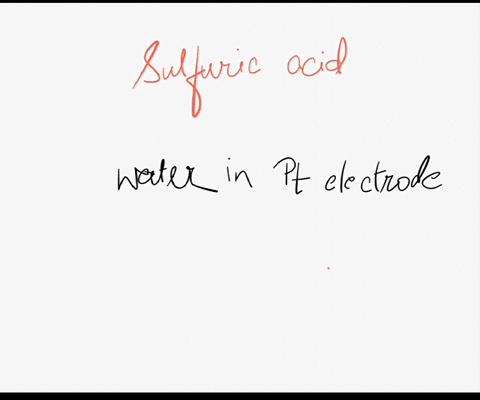 Sulfuric acid
water in Pt electrode